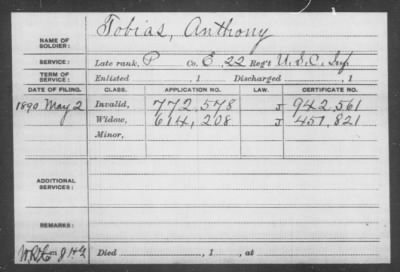 NAME OF SOLDIER: Tobias, Anthony
SERVICE: Late rank, P Co. E, 22 Reg't U.S.C. Inf
TERM OF SERVICE: Enlisted , 1 Discharged , 1
DATE OF FILING. CLASS. APPLICATION NO. LAW. CERTIFICATE NO.
1890 May 2 Invalid, 772,578 J 942,561
Widow, 614,208 J 451,821
Minor,
ADDITIONAL SERVICES:
REMARKS:
Died , 1 , at